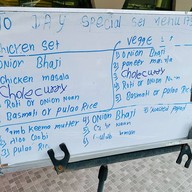 DAY Special Set Menu
Chicken Set
Onion Bhaji
Chicken masala
Cholecurry
Roti or onion Naan
Basmati or pulao Rice
Veggie
1) Onion Bhaji
2) Paneer masala
3) Cholecurry
4) Roti or Onion
5) Basmati or pulao Rice
Lamb Keema mutter
2) Aloo Gobi
3) pulao Rice
4) Onion Bhaji
5)